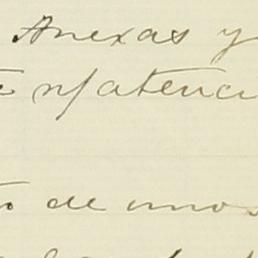 Anexas y
n/atenci
to de unos